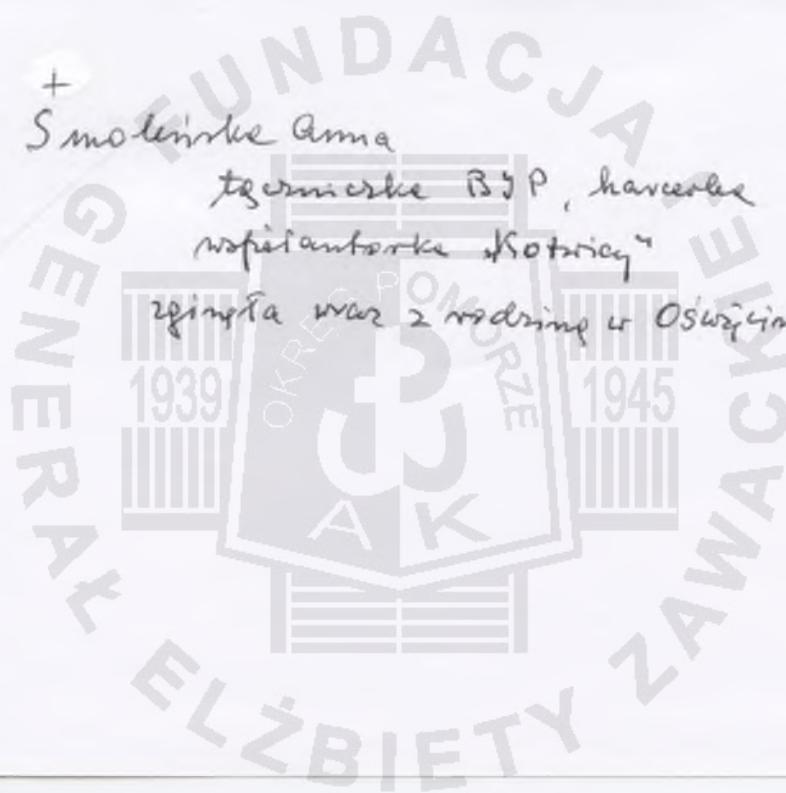 +
Smoleńska Anna
łączniczka BIP, harcerka
współautorka „Kotwicy"
zginęła wraz z rodziną w Oświęcim
FUNDACJA GENERAŁ ELŻBIETY ZAWACKIEJ
OKRĘG POMORZE
1939 1945
AK